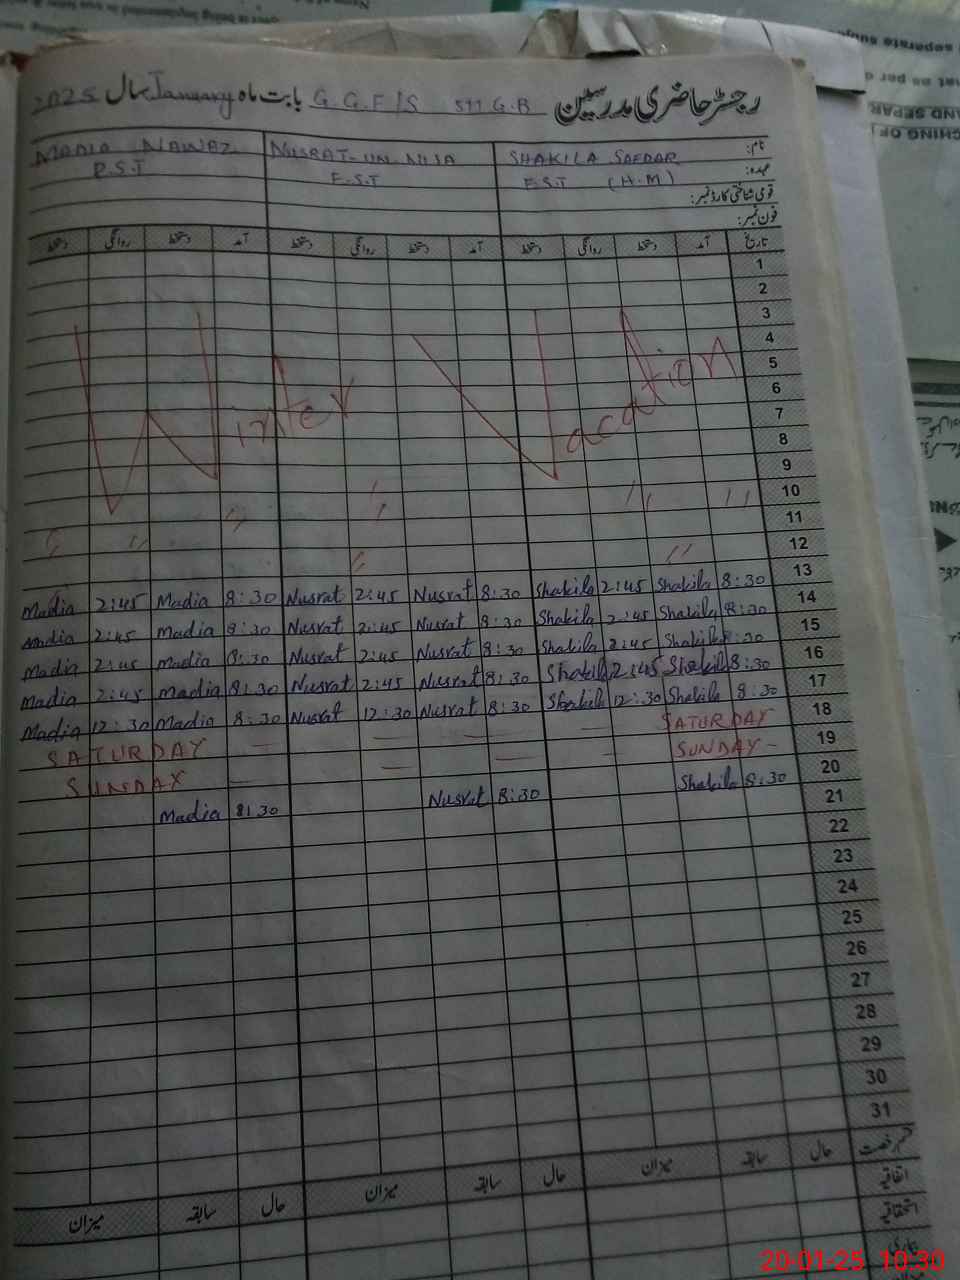 رجسٹر حاضری مدرسین G.G.E/S 511 G.B بابت ماہ January سال 2025
نام: SHAKILA SAFDAR NUSRAT-UN-NISA MADIA NAWAZ
عہدہ: E.S.T (H.M) E.S.T P.S.T
قومی شناختی کارڈ نمبر:
فون نمبر:
تاریخ آمد دستخط روانگی دستخط آمد دستخط روانگی دستخط آمد دستخط روانگی دستخط
1
2
3
4
5
6
7
8
9
10
11
12
Winter Vacation
13
Madia 2:45 Madia 8:30 Nusrat 2:45 Nusrat 8:30 Shakila 2:45 Shakila 8:30 14
Madia 2:45 Madia 8:30 Nusrat 2:45 Nusrat 8:30 Shakila 2:45 Shakila 8:30 15
Madia 2:45 Madia 8:30 Nusrat 2:45 Nusrat 8:30 Shakila 2:45 Shakila 8:30 16
Madia 2:45 Madia 8:30 Nusrat 2:45 Nusrat 8:30 Shakila 2:45 Shakila 8:30 17
Madia 12:30 Madia 8:30 Nusrat 12:30 Nusrat 8:30 Shakila 12:30 Shakila 8:30 18
SATURDAY SATURDAY 19
SUNDAY SUNDAY 20
Madia 8:30 Nusrat 8:30 Shakila 8:30 21
22
23
24
25
26
27
28
29
30
31
قسم رخصت حال سابقہ میزان حال سابقہ میزان حال سابقہ میزان
اتفاقیہ
استحقاقیہ
20-01-25 10:30